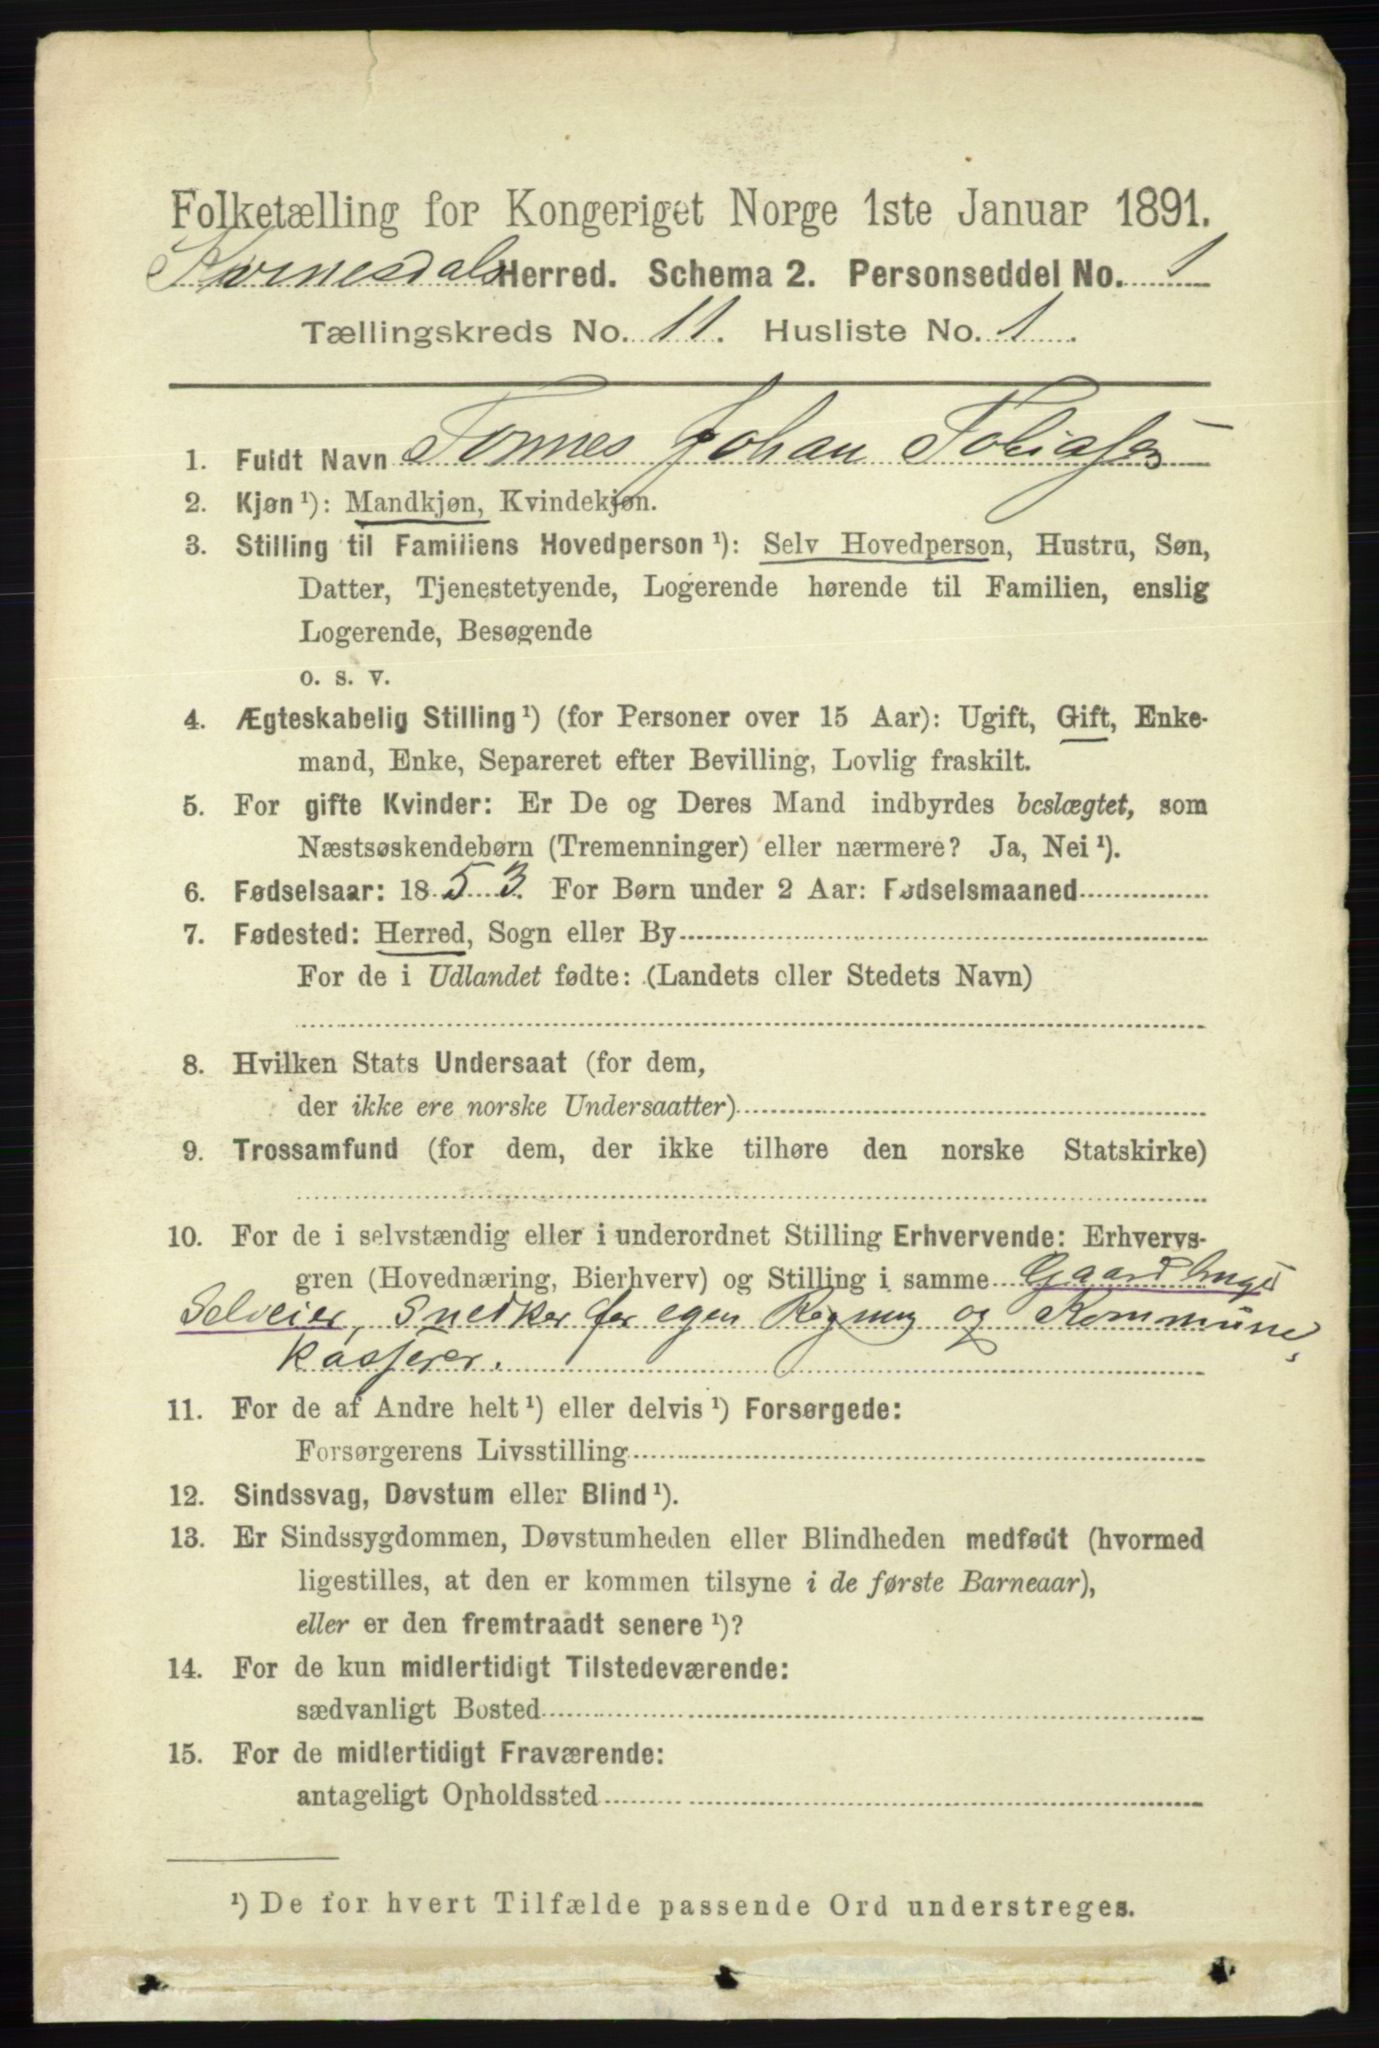 Folketælling for Kongeriget Norge 1ste Januar 1891.
Kvinesdals Herred. Schema 2. Personseddel No. 1
Tællingskreds No. 11. Husliste No. 1.
1. Fuldt Navn Tønnes Johan Tobiasen
2. Kjøn ¹): Mandkjøn, Kvindekjøn.
3. Stilling til Familiens Hovedperson ¹): Selv Hovedperson, Hustru, Søn,
Datter, Tjenestetyende, Logerende hørende til Familien, enslig
Logerende, Besøgende
o. s. v.
4. Ægteskabelig Stilling ¹) (for Personer over 15 Aar): Ugift, Gift, Enke-
mand, Enke, Separeret efter Bevilling, Lovlig fraskilt.
5. For gifte Kvinder: Er De og Deres Mand indbyrdes beslægtet, som
Næstsøskendebørn (Tremenninger) eller nærmere? Ja, Nei ¹).
6. Fødselsaar: 1853. For Børn under 2 Aar: Fødselsmaaned
7. Fødested: Herred, Sogn eller By
For de i Udlandet fødte: (Landets eller Stedets Navn)
8. Hvilken Stats Undersaat (for dem,
der ikke ere norske Undersaatter)
9. Trossamfund (for dem, der ikke tilhøre den norske Statskirke)
10. For de i selvstændig eller i underordnet Stilling Erhvervende: Erhvervs-
gren (Hovednæring, Bierhverv) og Stilling i samme Gaardbruger
Selveier, Snedker for egen Regning og Kommune,
kasserer.
11. For de af Andre helt ¹) eller delvis ¹) Forsørgede:
Forsørgerens Livsstilling
12. Sindssvag, Døvstum eller Blind ¹).
13. Er Sindssygdommen, Døvstumheden eller Blindheden medfødt (hvormed
ligestilles, at den er kommen tilsyne i de første Barneaar),
eller er den fremtraadt senere ¹)?
14. For de kun midlertidigt Tilstedeværende:
sædvanligt Bosted
15. For de midlertidigt Fraværende:
antageligt Opholdssted
¹) De for hvert Tilfælde passende Ord understreges.